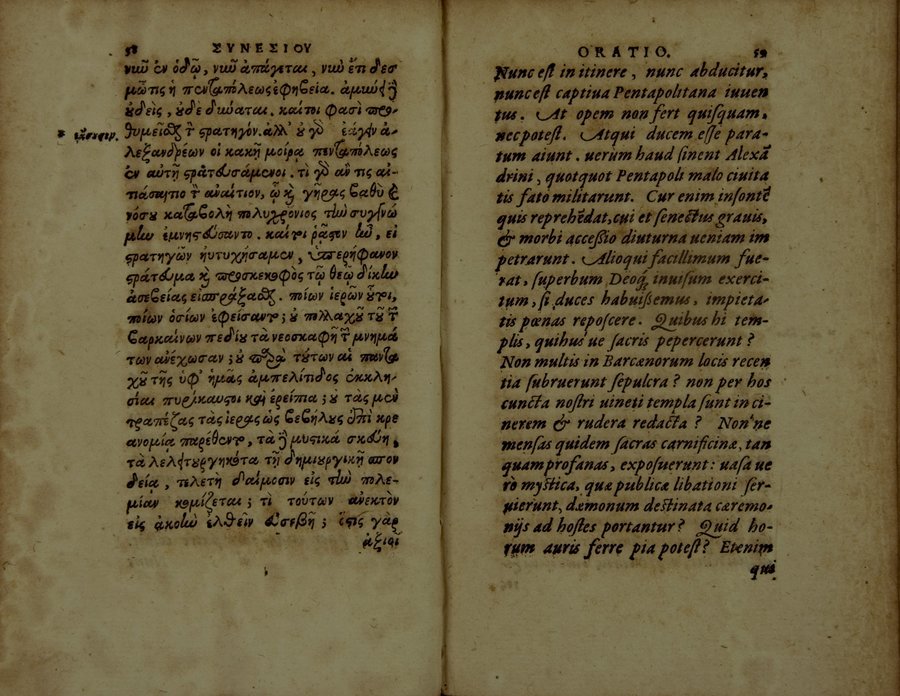 58 ΣΥΝΕΣΙΟΥ
νιῦ ἐν ὁδῷ, νιῦ ἀπάγεται, νιῦ ἔπι δεσ
μῶτις ἡ πενταπόλεως ἐφηβεία. ἀμιύει ἢ
ὐδεὶς, ὐδὲ διύαται. καίτοι φασὶ προ-
θυμεῖσθαι τ στρατηγόν. ἀλλ' ὐ γὸ ἐάγην ἀ-
λεξανδρέων οἱ κακῇ μοίρα πενταπόλεως
ἐν αὐτῇ στρατευσάμενοι. τί γὸ ἄν τις αἰ-
τιάσαιτο τ ἀναίτιον, ᾧ κ γῆρας βαθὺ κ
νόσυ καταβολὴ πολυχρόνιος τὼ συγγνώ
μιω ἐμνηστεύσαντο. καίτοι ῥᾷστον ἰῶ, εἰ
στρατηγῶν ηὐτυχήσαμεν, ὑπερήφανον
στράτευμα κ προσκεκοφὸς τῷ θεῷ δίκιω
ἀσεβείας εἰσπράξασθ. ποίων ἱερῶν ὗτοι,
ποίων ὁσίων ἐφείσαντο; ὐ πολλαχῦ τῦ τ
βαρκαίνων πεδίυ τὰ νεοσκαφῆ τ μνημά
των ἀνέχωσαν; ὐ παρὰ τύτων αἱ παντα
χῦ τῆς ὑφ' ἡμᾶς ἀμπελίτιδος ἐκκλη-
σίαι πυρίκαυτοι καὶ ἐρείπια; ὐ τὰς μεν
τραπέζας τὰς ἱερὰς ὡς βεβήλυς ἐπὶ κρε
ανομίᾳ παρέθεντο, τὰ ἢ μυστικὰ σκεύη,
τὰ λελειτυργηκότα τῇ δημιυργικῇ σπον
δείᾳ, τελετῇ δαίμοσιν εἰς τὼ πολε-
μίαν κομίζεται; τί τούτων ἀνεκτὸν
εἰς ἀκοὼ ἐλθεῖν εὐσεβῆ; ὅστις γὰρ
ἀξιοῖ
ORATIO. 59
Nunc est in itinere, nunc abducitur,
nunc est captiua Pentapolitana iuuen
tus. At opem non fert quisquam,
nec potest. Atqui ducem esse para-
tum aiunt. uerum haud sinent Alexã
drini, quotquot Pentapoli malo ciuita
tis fato militarunt. Cur enim insontẽ
quis reprehẽdat, cui et senectus grauis,
& morbi accessio diuturna ueniam im
petrarunt. Alioqui facillimum fue-
rat, superbum Deoq; inuisum exerci-
tum, si duces habuissemus, impieta-
tis pœnas reposcere. Quibus hi tem-
plis, quibus ue sacris pepercerunt?
Non multis in Barcænorum locis recen
tia subruerunt sepulcra? non per hos
cuncta nostri uineti templa sunt in ci-
nerem & rudera redacta? Non ne
mensas quidem sacras carnificinæ, tan
quam profanas, exposuerunt: uasa ue
rò mystica, quæ publicæ libationi ser-
uierunt, dæmonum destinata cæremo-
nijs ad hostes portantur? Quid ho-
rum auris ferre pia potest? Etenim
qui